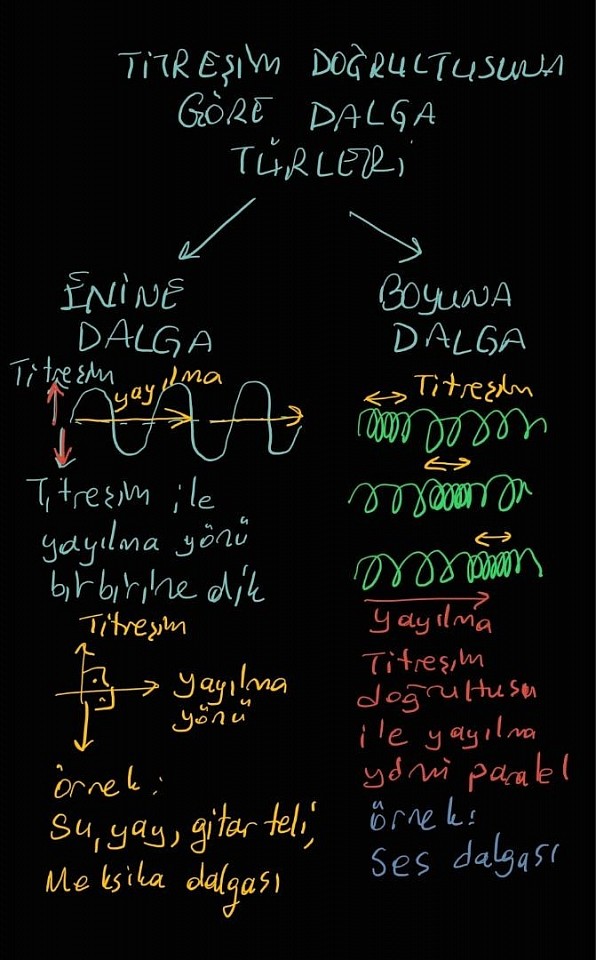 TİTREŞİM DOĞRULTUSUNA
GÖRE DALGA
TÜRLERİ
ENİNE
DALGA
Titreşim
yayılma
Titreşim ile
yayılma yönü
birbirine dik
Titreşim
yayılma
yönü
örnek:
Su, yay, gitar teli,
Meksika dalgası
BOYUNA
DALGA
Titreşim
yayılma
Titreşim
doğrultusu
ile yayılma
yönü paralel
örnek:
Ses dalgası